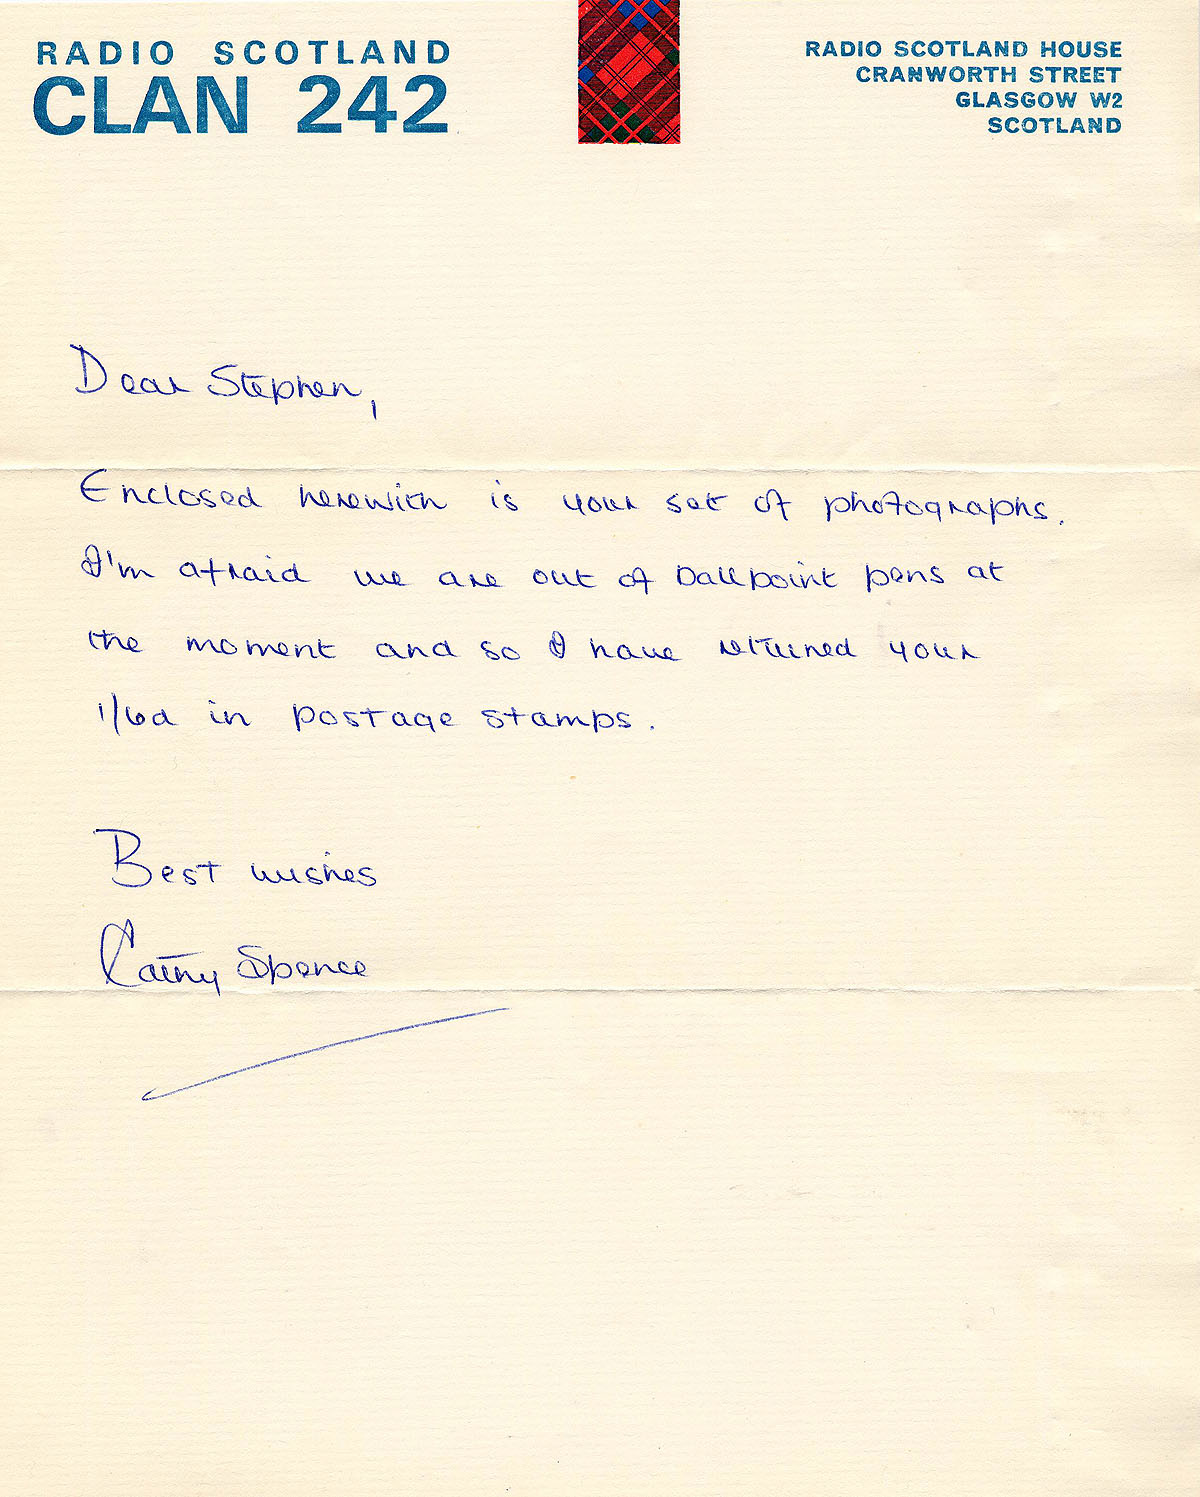 RADIO SCOTLAND
CLAN 242
RADIO SCOTLAND HOUSE
CRANWORTH STREET
GLASGOW W2
SCOTLAND
Dear Stephen,
Enclosed herewith is your set of photographs.
I'm afraid we are out of Ballpoint pens at
the moment and so I have returned your
1/6d in postage stamps.
Best wishes
Cathy Spence